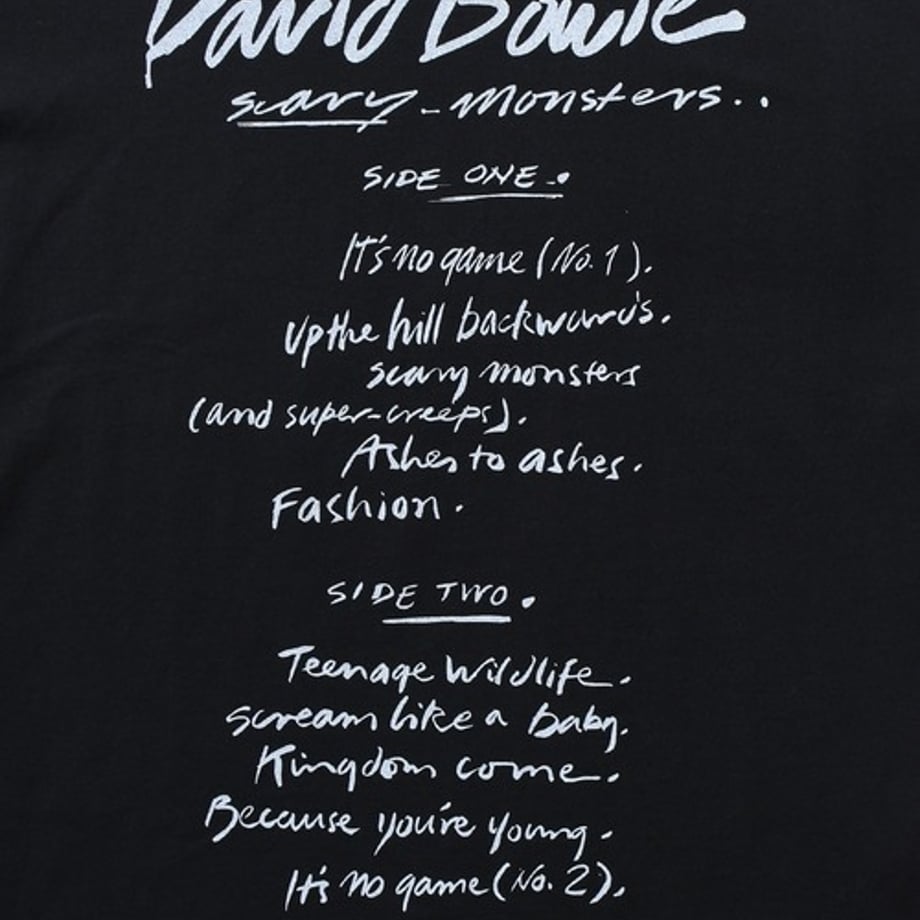 David Bowie
scary-monsters..
SIDE ONE.
It's no game (No. 1).
Up the hill backwards.
scary monsters
(and super-creeps).
Ashes to ashes.
Fashion.
SIDE TWO.
Teenage Wildlife.
scream like a baby.
Kingdom come.
Because you're young.
It's no game (No. 2).